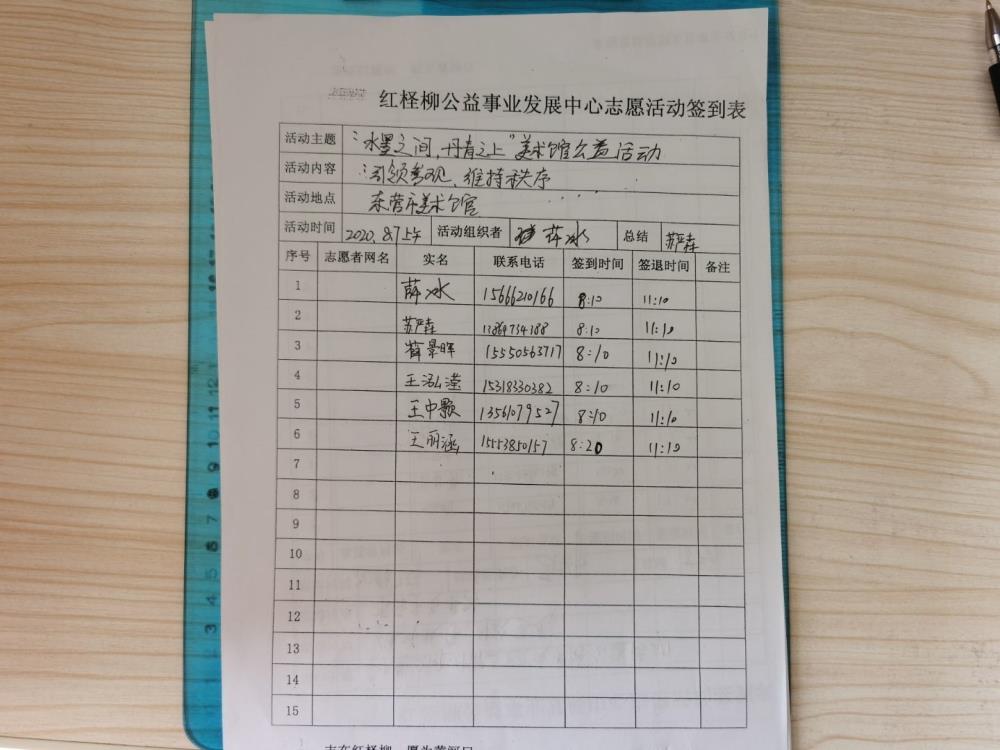 红柽柳公益事业发展中心志愿活动签到表
活动主题 "水墨之间,丹青之上"美术馆公益活动
活动内容 引领参观、维持秩序
活动地点 东营市美术馆
活动时间 2020.8.7上午 活动组织者 薛冰 总结 苏严森
序号 志愿者网名 实名 联系电话 签到时间 签退时间 备注
1 薛冰 1566210166 8:10 11:10
2 苏严森 13864734188 8:10 11:10
3 薛景晖 15550563717 8:10 11:10
4 王泓滢 15318330382 8:10 11:10
5 王中颢 13561079527 8:10 11:10
6 王丽涵 15553850157 8:20 11:10
7
8
9
10
11
12
13
14
15